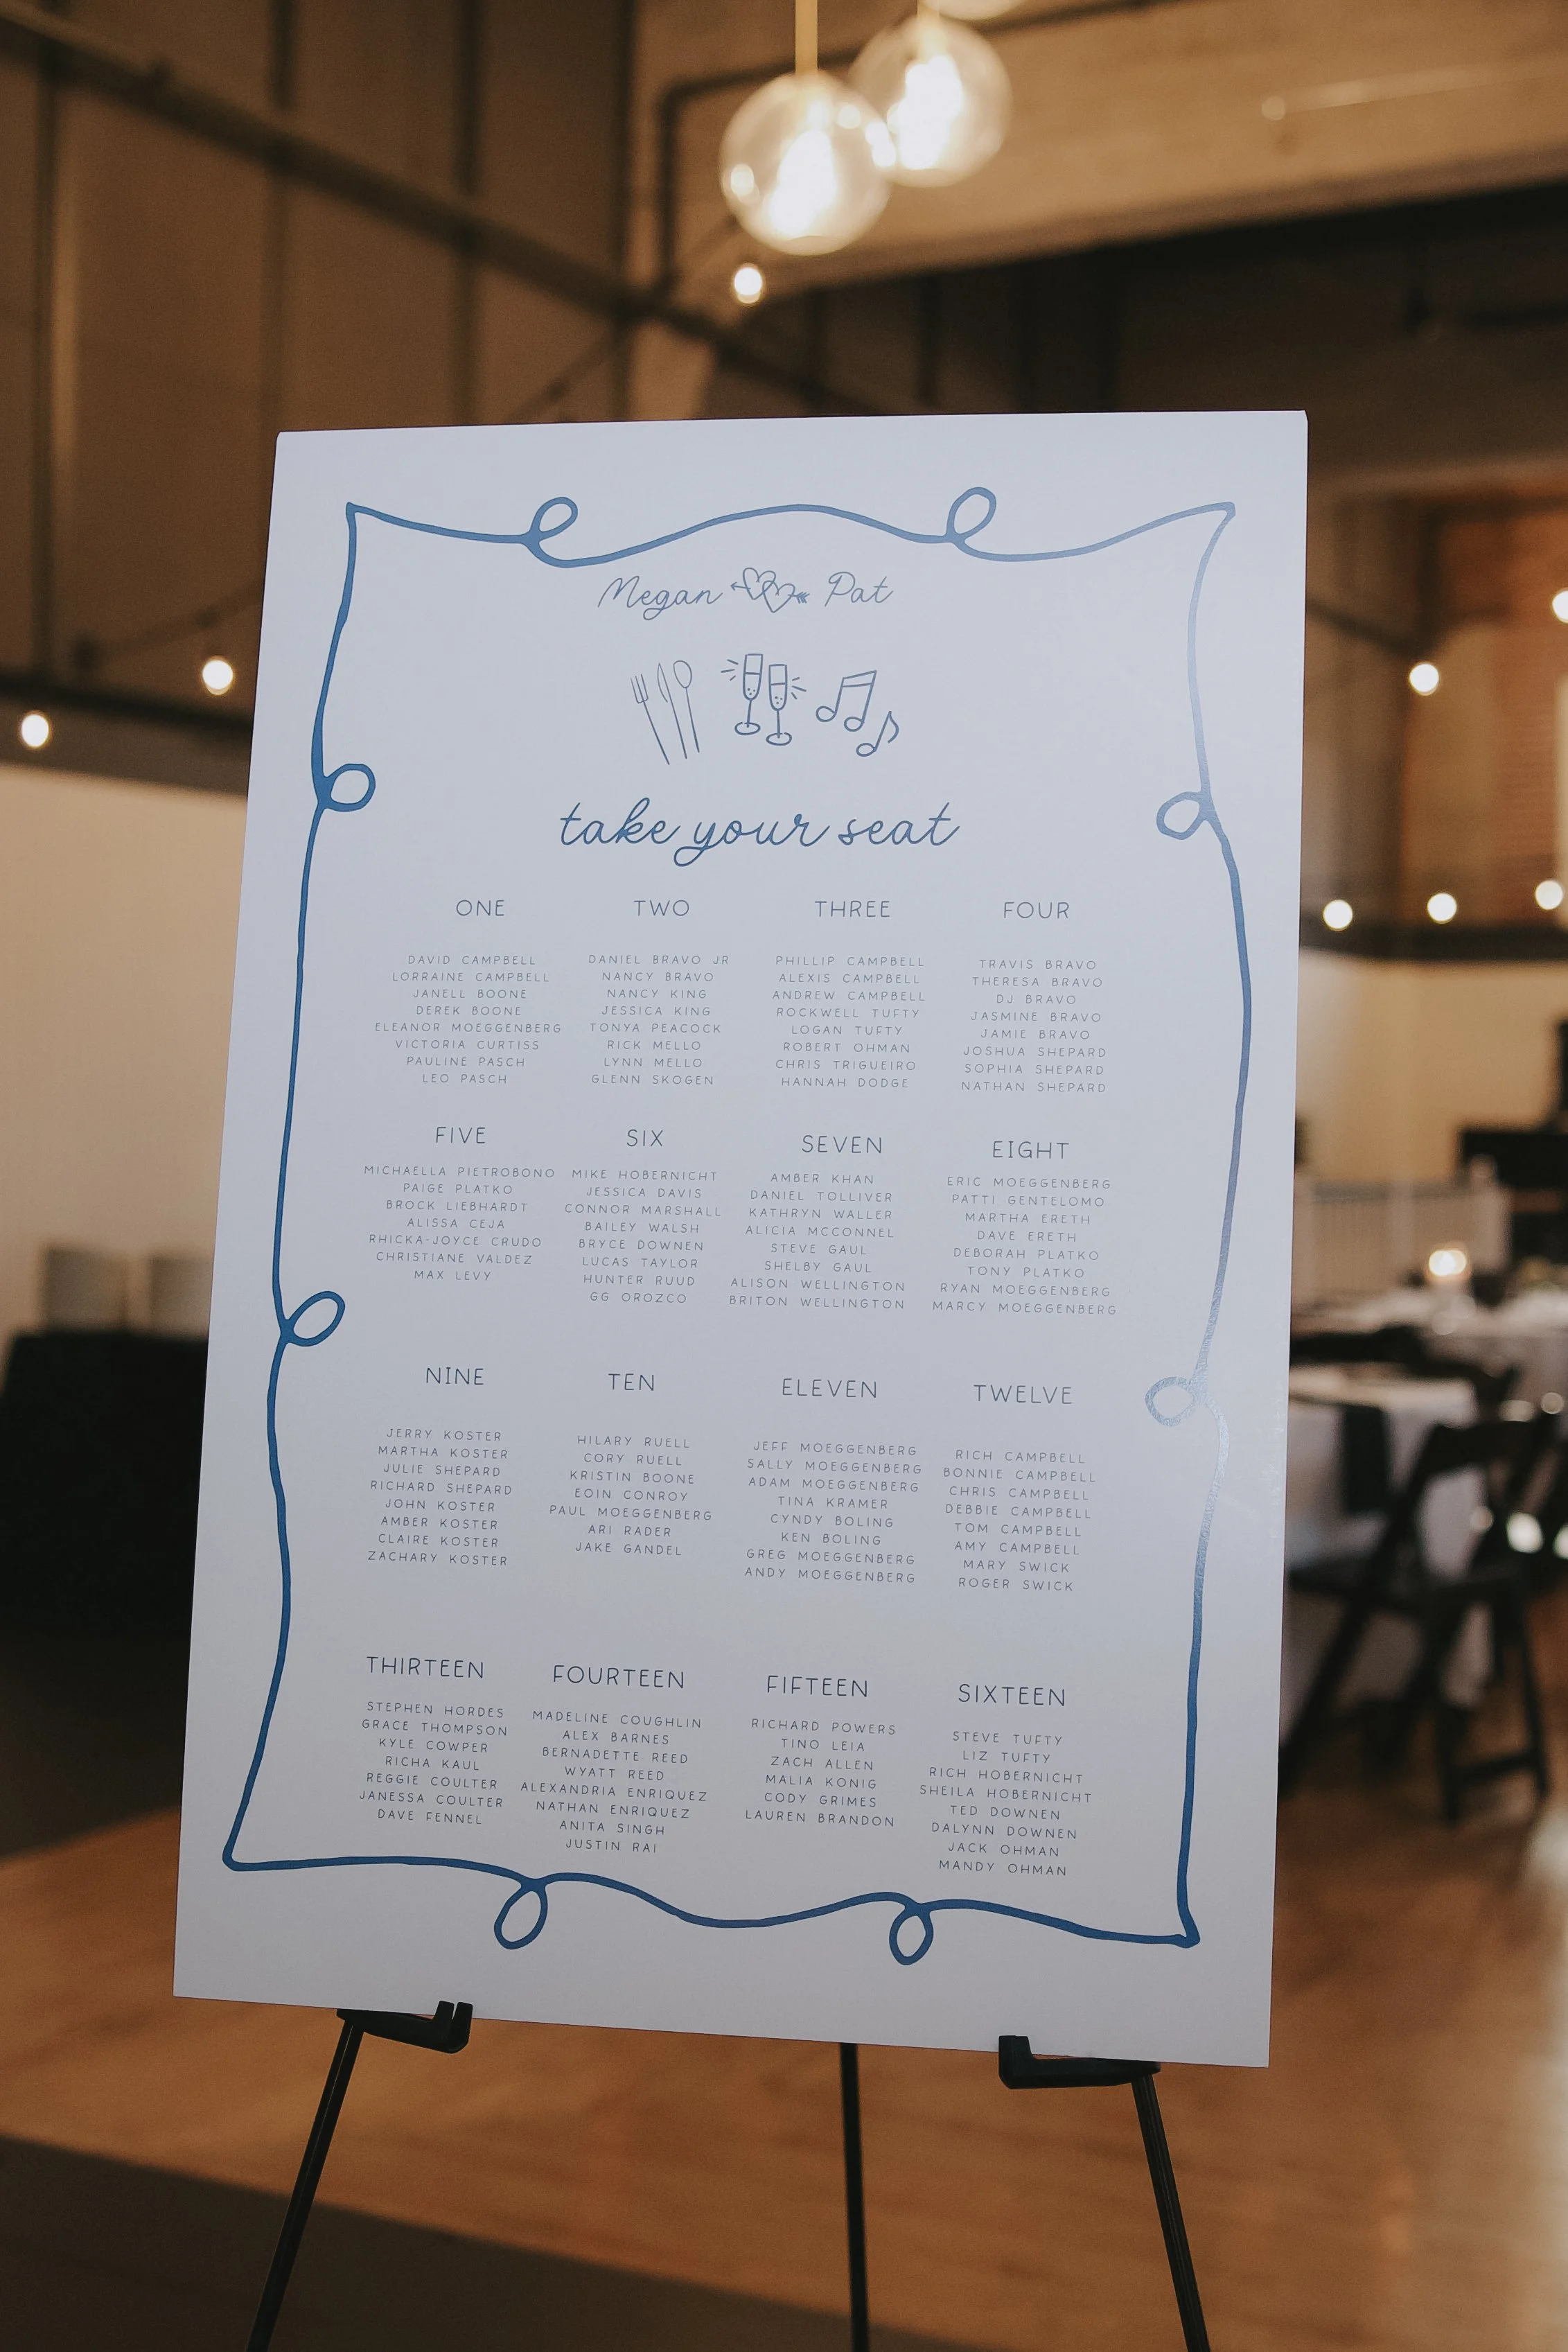 Megan Pat
take your seat
ONE
DAVID CAMPBELL
LORRAINE CAMPBELL
JANELL BOONE
DEREK BOONE
ELEANOR MOEGGENBERG
VICTORIA CURTISS
PAULINE PASCH
LEO PASCH
TWO
DANIEL BRAVO JR
NANCY BRAVO
NANCY KING
JESSICA KING
TONYA PEACOCK
RICK MELLO
LYNN MELLO
GLENN SKOGEN
THREE
PHILLIP CAMPBELL
ALEXIS CAMPBELL
ANDREW CAMPBELL
ROCKWELL TUFTY
LOGAN TUFTY
ROBERT OHMAN
CHRIS TRIGUEIRO
HANNAH DODGE
FOUR
TRAVIS BRAVO
THERESA BRAVO
DJ BRAVO
JASMINE BRAVO
JAMIE BRAVO
JOSHUA SHEPARD
SOPHIA SHEPARD
NATHAN SHEPARD
FIVE
MICHAELLA PIETROBONO
PAIGE PLATKO
BROCK LIEBHARDT
ALISSA CEJA
RHICKA-JOYCE CRUDO
CHRISTIANE VALDEZ
MAX LEVY
SIX
MIKE HOBERNICHT
JESSICA DAVIS
CONNOR MARSHALL
BAILEY WALSH
BRYCE DOWNEN
LUCAS TAYLOR
HUNTER RUUD
GG OROZCO
SEVEN
AMBER KHAN
DANIEL TOLLIVER
KATHRYN WALLER
ALICIA MCCONNEL
STEVE GAUL
SHELBY GAUL
ALISON WELLINGTON
BRITON WELLINGTON
EIGHT
ERIC MOEGGENBERG
PATTI GENTELOMO
MARTHA ERETH
DAVE ERETH
DEBORAH PLATKO
TONY PLATKO
RYAN MOEGGENBERG
MARCY MOEGGENBERG
NINE
JERRY KOSTER
MARTHA KOSTER
JULIE SHEPARD
RICHARD SHEPARD
JOHN KOSTER
AMBER KOSTER
CLAIRE KOSTER
ZACHARY KOSTER
TEN
HILARY RUELL
CORY RUELL
KRISTIN BOONE
EOIN CONROY
PAUL MOEGGENBERG
ARI RADER
JAKE GANDEL
ELEVEN
JEFF MOEGGENBERG
SALLY MOEGGENBERG
ADAM MOEGGENBERG
TINA KRAMER
CYNDY BOLING
KEN BOLING
GREG MOEGGENBERG
ANDY MOEGGENBERG
TWELVE
RICH CAMPBELL
BONNIE CAMPBELL
CHRIS CAMPBELL
DEBBIE CAMPBELL
TOM CAMPBELL
AMY CAMPBELL
MARY SWICK
ROGER SWICK
THIRTEEN
STEPHEN HORDES
GRACE THOMPSON
KYLE COWPER
RICHA KAUL
REGGIE COULTER
JANESSA COULTER
DAVE FENNEL
FOURTEEN
MADELINE COUGHLIN
ALEX BARNES
BERNADETTE REED
WYATT REED
ALEXANDRIA ENRIQUEZ
NATHAN ENRIQUEZ
ANITA SINGH
JUSTIN RAI
FIFTEEN
RICHARD POWERS
TINO LEIA
ZACH ALLEN
MALIA KONIG
CODY GRIMES
LAUREN BRANDON
SIXTEEN
STEVE TUFTY
LIZ TUFTY
RICH HOBERNICHT
SHEILA HOBERNICHT
TED DOWNEN
DALYNN DOWNEN
JACK OHMAN
MANDY OHMAN